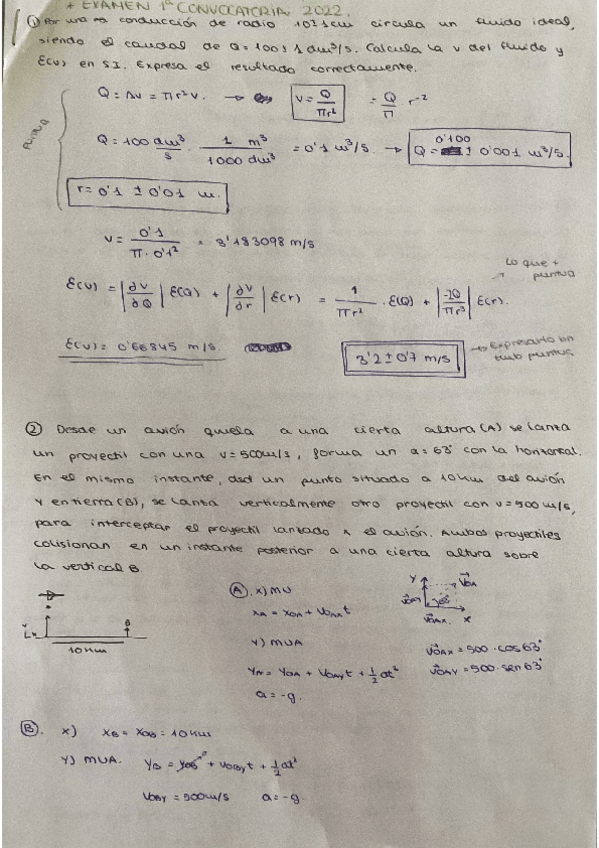 * EXAMEN 1ª CONVOCATORIA 2022.
① Por una conducción de radio 10±1cm circula un fluido ideal,
siendo el caudal de Q=100±1 dm³/s. Calcula la v del fluido y
ε(v) en S.I. Expresa el resultado correctamente.
Q = Av = πr²v. → v = Q/πr² = Q/π r⁻²
puntua
Q = 100 dm³/s · 1 m³/1000 dm³ = 0'1 m³/s. → Q = 0'100 ± 0'001 m³/s.
r = 0'1 ± 0'01 m.
v = 0'1/π·0'1² = 3'183098 m/s
Lo que + puntua
ε(v) = |∂v/∂Q| ε(Q) + |∂v/∂r| ε(r) = 1/πr² · ε(Q) + |-2Q/πr³| ε(r).
ε(v) = 0'66845 m/s. 3'2 ± 0'7 m/s → Expresarlo bien puntua
② Desde un avión que a una cierta altura (A) se lanza
un proyectil con una v=500m/s, forma un α=63° con la horizontal.
En el mismo instante, dsd un punto situado a 10km del avión
y en tierra (B), se lanza verticalmente otro proyectil con v=900 m/s,
para interceptar el proyectil lanzado x el avión. Ambos proyectiles
colisionan en un instante posterior a una cierta altura sobre
la vertical B.
Ⓐ x) MU
xA = x0A + v0Ax t
y) MUA
yA = y0A + v0Ay t + 1/2 at²
a = -g.
Y v0A
v0Ay 63°
v0Ax X
v0Ax = 500 · cos 63°
v0Ay = 500 · sen 63°
B
10km
Ⓑ. x) xB = x0B = 10km
y) MUA. yB = y0B + v0By t + 1/2 at²
v0By = 900m/s a = -g.